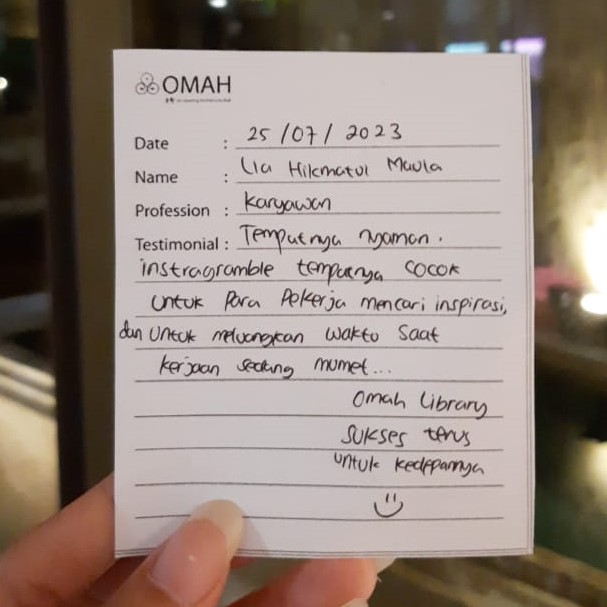 OMAH
Date : 25/07/2023
Name : Lia Hikmatul Maula
Profession : Karyawan
Testimonial : Tempatnya nyaman.
instragramble tempatnya cocok
untuk Para Pekerja mencari inspirasi,
dan Untuk meluangkan waktu Saat
kerjaan sedang mumet...
Omah Library
Sukses terus
untuk kedepannya